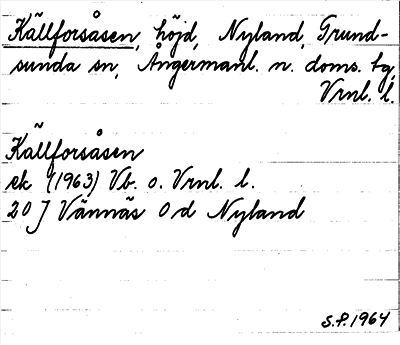 Källforsåsen, höjd, Nyland, Grund-
sunda sn, Ångermanl. n. doms. tg,
Vrnl. l.
Källforsåsen
ek (1963) Vb. o. Vrnl. l.
20 J Vännäs 0 d Nyland
S.P. 1964